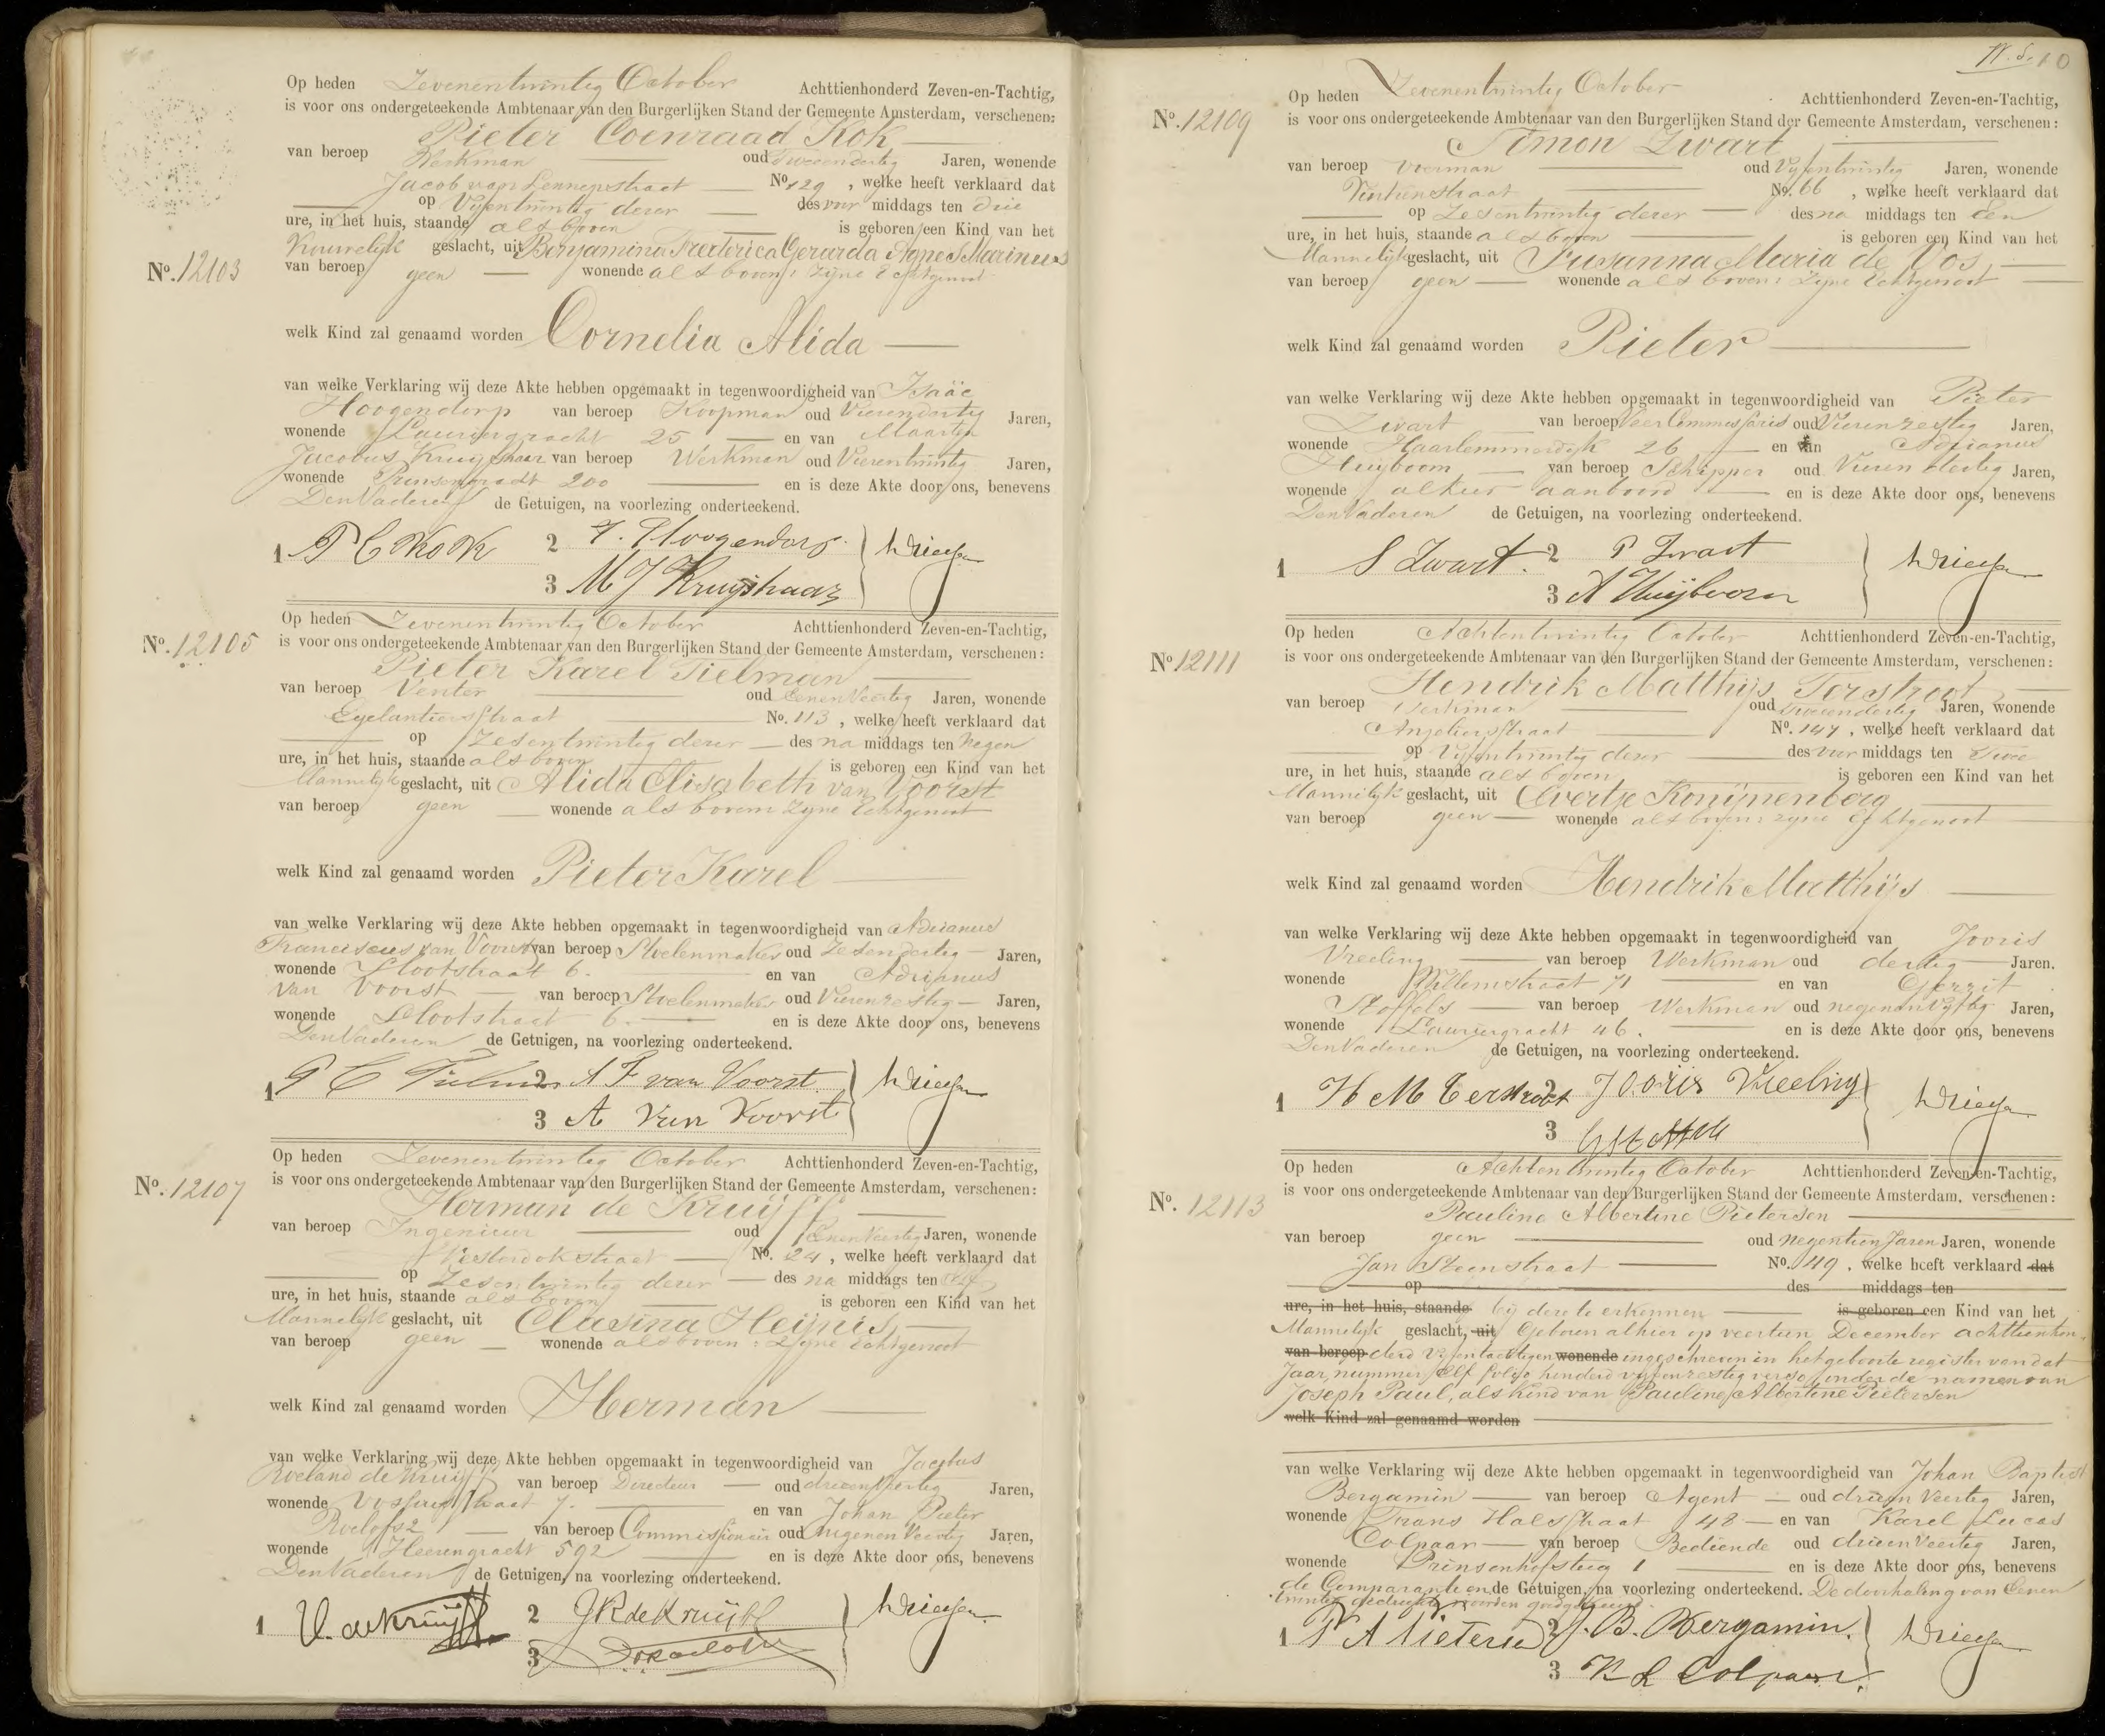 Op heden Zevenentwintig October Achttienhonderd Zeven-en-Tachtig,
is voor ons ondergeteekende Ambtenaar van den Burgerlijken Stand der Gemeente Amsterdam, verschenen:
Pieter Coenraad Kok
van beroep Werkman oud Tweeendertig Jaren, wonende
Jacob van Lennepstraat No. 129, welke heeft verklaard dat
op Vijfentwintig dezer des voor middags ten drie
ure, in het huis, staande als boven is geboren een Kind van het
Vrouwelijk geslacht, uit Benjamina Frederica Gerarda Agnes Marinus
No. 12103
van beroep geen wonende als boven, zijne Echtgenoot
welk Kind zal genaamd worden Cornelia Alida
van welke Verklaring wij deze Akte hebben opgemaakt in tegenwoordigheid van Isaäc
Hoogendorp van beroep Koopman oud Vierendertig Jaren,
wonende Lauriergracht 25 en van Maarten
Jacobus Kruijshaar van beroep Werkman oud Vierentwintig Jaren,
wonende Prinsengracht 200 en is deze Akte door ons, benevens
Den Vader en de Getuigen, na voorlezing onderteekend.
1 P C Kok 2 I. Hoogendorp
3 M J Kruijshaar
Op heden Zevenentwintig October Achttienhonderd Zeven-en-Tachtig,
No. 12105
is voor ons ondergeteekende Ambtenaar van den Burgerlijken Stand der Gemeente Amsterdam, verschenen:
Pieter Karel Tielman
van beroep Venter oud Eenenveertig Jaren, wonende
Egelantierstraat No. 113, welke heeft verklaard dat
op Zesentwintig dezer des na middags ten Negen
ure, in het huis, staande als boven is geboren een Kind van het
Mannelijk geslacht, uit Alida Elisabeth van Voorst
van beroep geen wonende als boven zijne Echtgenoot
welk Kind zal genaamd worden Pieter Karel
van welke Verklaring wij deze Akte hebben opgemaakt in tegenwoordigheid van Adrianus
Franciscus van Voorst van beroep Stoelenmaker oud Zesendertig Jaren,
wonende Slootstraat 6. en van Adrianus
van Voorst van beroep Stoelenmaker oud Vierenzestig Jaren,
wonende Slootstraat 6. en is deze Akte door ons, benevens
Den Vader en de Getuigen, na voorlezing onderteekend.
1 2 A F van Voorst
3 A van Voorst
Op heden Zevenentwintig October Achttienhonderd Zeven-en-Tachtig,
No. 12107
is voor ons ondergeteekende Ambtenaar van den Burgerlijken Stand der Gemeente Amsterdam, verschenen:
Herman de Kruijff
van beroep Ingenieur oud Eenenveertig Jaren, wonende
Westerdokstraat No. 24, welke heeft verklaard dat
op Zesentwintig dezer des na middags ten Elf
ure, in het huis, staande als boven is geboren een Kind van het
Mannelijk geslacht, uit Clasina Heijnis
van beroep geen wonende als boven: Zijne Echtgenoot
welk Kind zal genaamd worden Herman
van welke Verklaring wij deze Akte hebben opgemaakt in tegenwoordigheid van Jacobus
Roeland de Kruijff van beroep Directeur oud drieenveertig Jaren,
wonende Vossiusstraat 7. en van Johan Pieter
Roelofsz van beroep Commissionair oud Negenenveertig Jaren,
wonende Heerengracht 592 en is deze Akte door ons, benevens
Den Vader en de Getuigen, na voorlezing onderteekend.
1 H. de Kruijff 2 J R de Kruijff
3
Op heden Zevenentwintig October Achttienhonderd Zeven-en-Tachtig,
No. 12109
is voor ons ondergeteekende Ambtenaar van den Burgerlijken Stand der Gemeente Amsterdam, verschenen:
Simon Zwart
van beroep Voerman oud Vijfentwintig Jaren, wonende
No. 66, welke heeft verklaard dat
op Zesentwintig dezer des na middags ten Een
ure, in het huis, staande als boven is geboren een Kind van het
Mannelijk geslacht, uit Susanna Maria de Vos
van beroep geen wonende als boven: Zijne Echtgenoot
welk Kind zal genaamd worden Pieter
van welke Verklaring wij deze Akte hebben opgemaakt in tegenwoordigheid van Pieter
Zwart van beroep Veer Commissaris oud Vierenzestig Jaren,
wonende Haarlemmerdijk 26 en van Adrianus
Huijboom van beroep Schipper oud Vierendertig Jaren,
wonende alhier aanboord en is deze Akte door ons, benevens
Den Vader en de Getuigen, na voorlezing onderteekend.
1 S Zwart. 2 P Zwart
3 A Huijboom
Op heden Achtentwintig October Achttienhonderd Zeven-en-Tachtig,
No. 12111
is voor ons ondergeteekende Ambtenaar van den Burgerlijken Stand der Gemeente Amsterdam, verschenen:
Hendrik Matthijs Terstroot
van beroep Werkman oud Tweeendertig Jaren, wonende
Anjelierstraat No. 147, welke heeft verklaard dat
op Vijfentwintig dezer des voor middags ten Twee
ure, in het huis, staande als boven is geboren een Kind van het
Mannelijk geslacht, uit Evertje Konijnenberg
van beroep geen wonende als boven: zijne Echtgenoot
welk Kind zal genaamd worden Hendrik Matthijs
van welke Verklaring wij deze Akte hebben opgemaakt in tegenwoordigheid van Jooris
Vreeling van beroep Werkman oud dertig Jaren.
wonende Willemstraat 71 en van Gerrit
Stoffels van beroep Werkman oud negenenvijftig Jaren,
wonende Lauriergracht 46. en is deze Akte door ons, benevens
Den Vader en de Getuigen, na voorlezing onderteekend.
1 H M Terstroot 2 Jooris Vreeling
3
Op heden Achtentwintig October Achttienhonderd Zeven-en-Tachtig,
No. 12113
is voor ons ondergeteekende Ambtenaar van den Burgerlijken Stand der Gemeente Amsterdam, verschenen:
Pauline Albertine Pietersen
van beroep geen oud negentien Jaren Jaren, wonende
Jan Steenstraat No. 49, welke heeft verklaard dat
op des middags ten
ure, in het huis, staande bij deze te erkennen is geboren een Kind van het
Mannelijk geslacht, uit Geboren alhier op veertien December achttienhon-
van beroep derd Vijfentachtig en wonende ingeschreven in het geboorte register van dat
Jaar, nummer Elf folio honderd vijfenzestig verso onder de namen van
Joseph Paul, als Kind van Pauline Albertine Pietersen
welk Kind zal genaamd worden
van welke Verklaring wij deze Akte hebben opgemaakt in tegenwoordigheid van Johan Baptist
Bergamin van beroep Agent oud drieenveertig Jaren,
wonende Frans Halsstraat 48 en van Karel Lucas
Colpaar van beroep Bediende oud drieenveertig Jaren,
wonende Prinsenhofsteeg 1 en is deze Akte door ons, benevens
de Comparante en de Getuigen, na voorlezing onderteekend. De doorhaling van Eenen
twintig gedrukte woorden goedgekeurd.
1 P A Pietersen 2 J. B. Bergamin.
3 K L Colpaar.